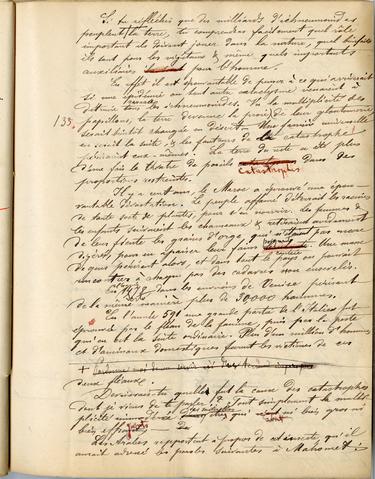 Si tu réfléchis que des milliards d'ichneumonides
peuplent la terre, tu comprendras facilement quel rôle
important ils doivent jouer dans la nature, quel
ils sont pour les végétaux & même, quels importants
auxiliaires pour l'homme.
En effet il est épouvantable de penser à ce qui arriverait
si une épidémie ou tout autre cataclysme venaient à
détruire tous les ichneumonides. Vu la multiplicité des
133. papillons, la terre devenue la proie de leur gloutonnerie
serait bientôt changée en désert. Une famine universelle
en serait la suite & les fauteurs de la catastrophe
périraient eux-mêmes. La terre du reste a été plus
d'une fois le théâtre de pareils dans des
catastrophes
proportions restreintes.
Il y a cent ans, le Maroc a éprouvé une épou-
vantable dévastation. Le peuple affamé déterrait les racines
de toute sorte de plantes, pour s'en nourrir. Les femmes &
les enfants suivaient les chameaux & retiraient avidement
de leur fiente les grains d'orge, qui n'étaient pas encore
digérés, pour en apaiser leur faim. Une masse
de gens périrent alors, et dans tout le pays on pouvait
rencontrer à chaque pas des cadavres non ensevelis.
En 1478 dans les environs de Venise périrent
de la même manière plus de 30000 hommes.
En l'année 591 une grande partie de l'Italie fut
éprouvée par le fléau de la famine, puis par la peste
qui en est la suite ordinaire. Plus d'un million d'hommes
et d'animaux domestiques furent les victimes de ces
deux fléaux.
Devinerais-tu quelle fut la cause des catastrophes
dont je viens de te parler? Tout simplement la multi-
plicité qui n'est ni bien gros ni
bien
Les Arabes rapportent à propos de cet insecte, qu'il
aurait adressé les paroles suivantes à Mahomet: